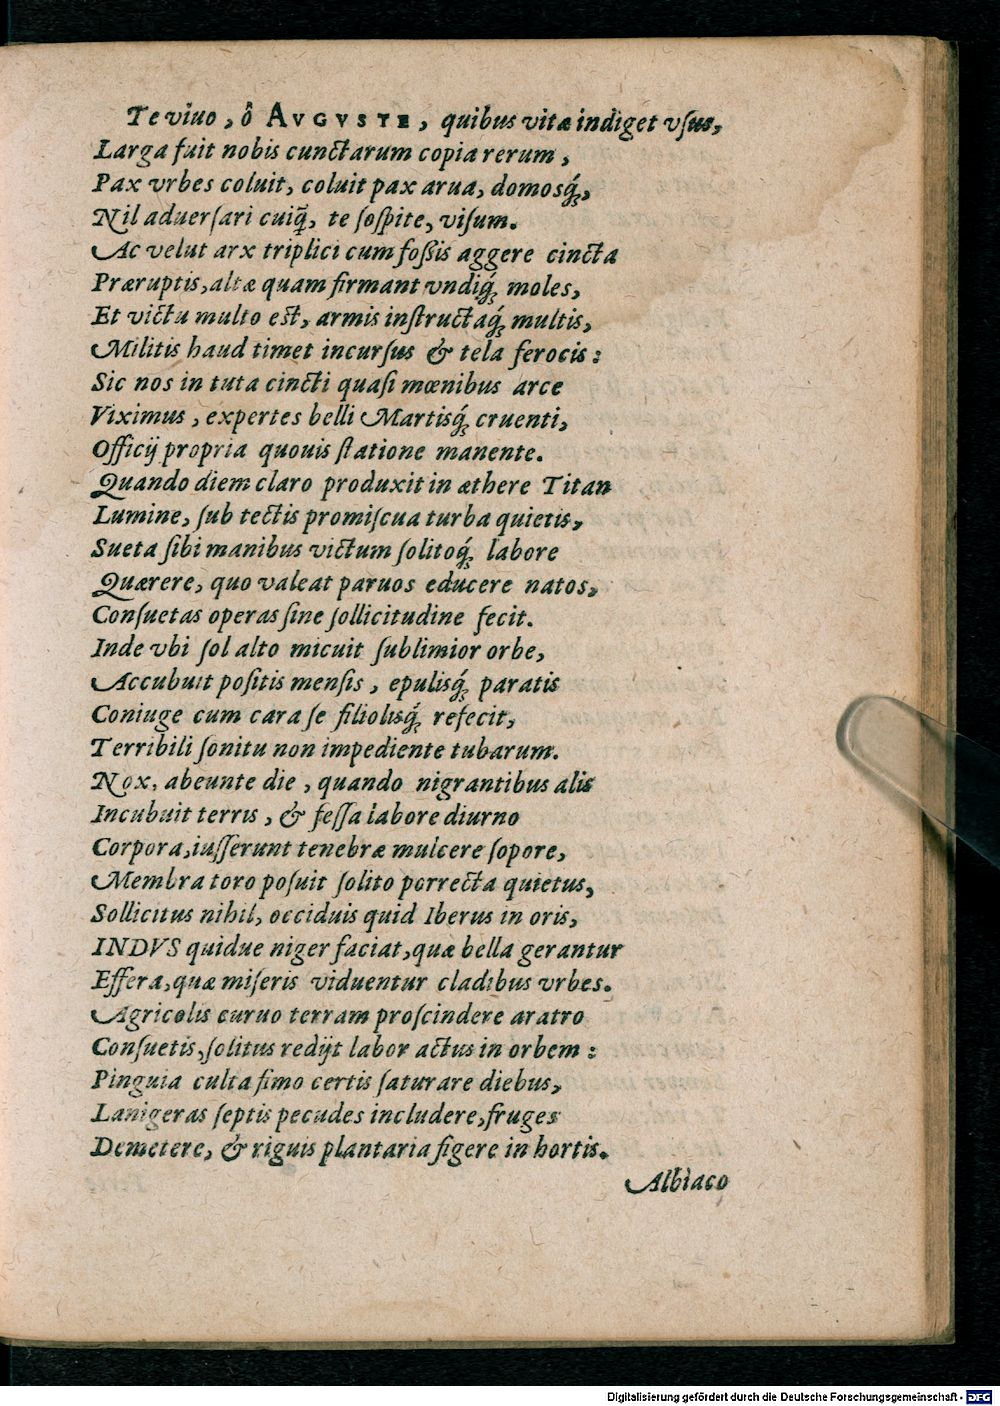 Te viuo, ô AVGVSTE, quibus vitæ indiget vſus,
Larga fuit nobis cunctarum copia rerum,
Pax vrbes coluit, coluit pax arua, domosq́;,
Nil aduerſari cuiq̃;, te ſoſpite, viſum.
Ac velut arx triplici cum foſsis aggere cincta
Præruptis, altæ quam firmant vndiq́; moles,
Et victu multo est, armis inſtructaq́; multis,
Militis haud timet incurſus & tela ferocis:
Sic nos in tuta cincti quaſi mœnibus arce
Viximus, expertes belli Martisq́; cruenti,
Officij propria quouis ſtatione manente.
Quando diem claro produxit in æthere Titan
Lumine, ſub tectis promiſcua turba quietis,
Sueta ſibi manibus victum ſolitoq́; labore
Quærere, quo valeat paruos educere natos,
Conſuetas operas ſine ſollicitudine fecit.
Inde vbi ſol alto micuit ſublimior orbe,
Accubuit poſitis menſis, epulisq́; paratis
Coniuge cum cara ſe filiolisq́; refecit,
Terribili ſonitu non impediente tubarum.
Nox, abeunte die, quando nigrantibus alis
Incubuit terris, & feſſa labore diurno
Corpora, iuſſerunt tenebræ mulcere ſopore,
Membra toro poſuit ſolito porrecta quietus,
Sollicitus nihil, occiduis quid Iberus in oris,
INDVS quidue niger faciat, quæ bella gerantur
Effera, quæ miſeris viduentur cladibus vrbes.
Agricolis curuo terram proſcindere aratro
Conſuetis, ſolitus redijt labor actus in orbem:
Pinguia culta fimo certis ſaturare diebus,
Lanigeras ſeptis pecudes includere, fruges
Demetere, & riguis plantaria figere in hortis.
Albiaco
Digitalisierung gefördert durch die Deutsche Forschungsgemeinschaft - DFG